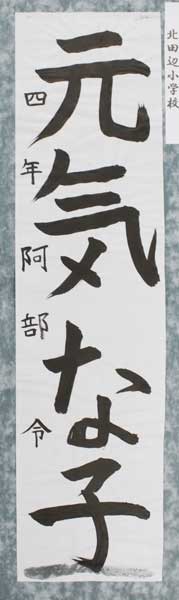 北田辺小学校
元気な子
四年阿部令